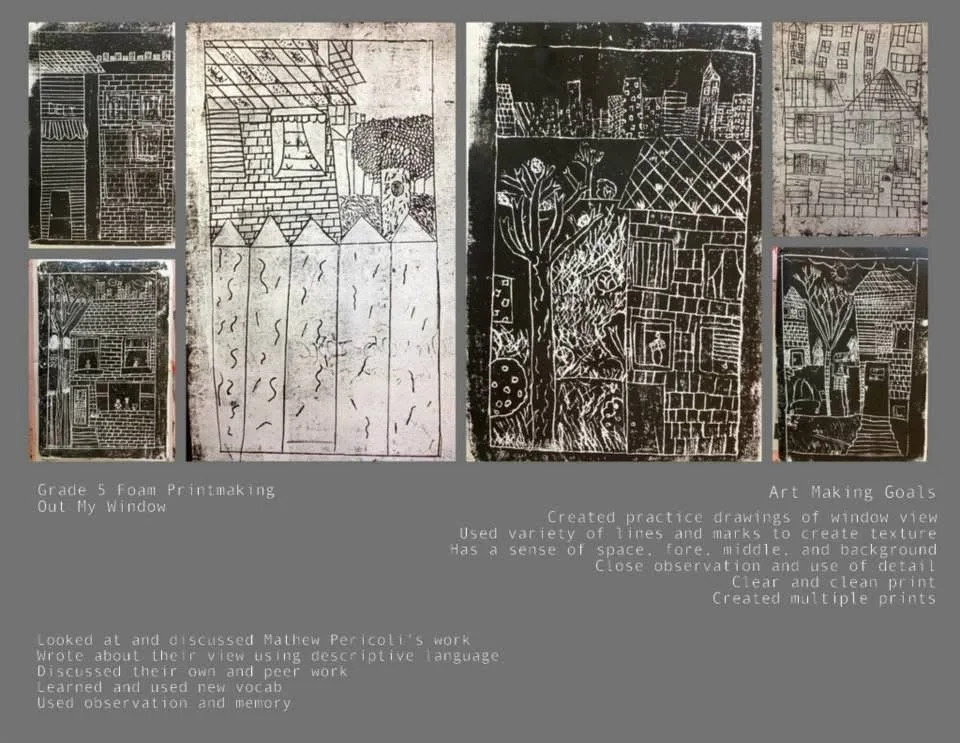 DELI
Grade 5 Foam Printmaking
Out My Window
Art Making Goals
Created practice drawings of window view
Used variety of lines and marks to create texture
Has a sense of space, fore, middle, and background
Close observation and use of detail
Clear and clean print
Created multiple prints
Looked at and discussed Mathew Pericoli's work
Wrote about their view using descriptive language
Discussed their own and peer work
Learned and used new vocab
Used observation and memory